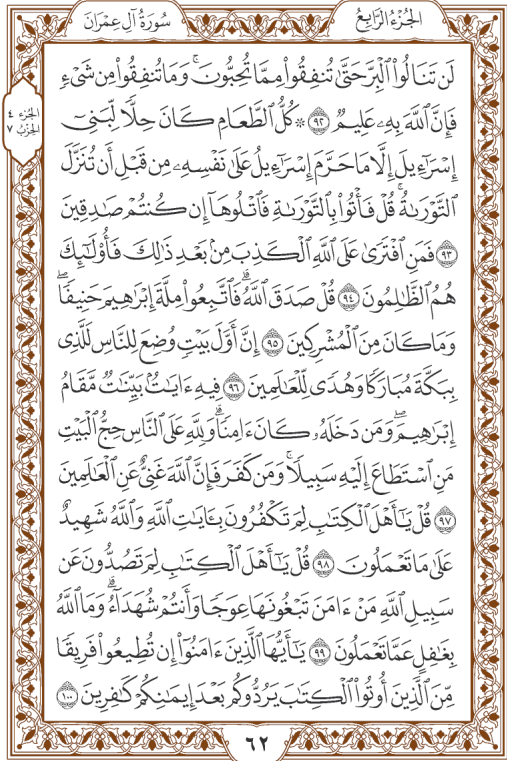 الجُزْءُ الرَّابِعُ
سُورَةُ آلِ عِمْرَان
الجزء ٤
الحزب ٧
لَن تَنَالُوا۟ ٱلْبِرَّ حَتَّىٰ تُنفِقُوا۟ مِمَّا تُحِبُّونَ ۚ وَمَا تُنفِقُوا۟ مِن شَىْءٍ
فَإِنَّ ٱللَّهَ بِهِۦ عَلِيمٌ ٩٢ ۞ كُلُّ ٱلطَّعَامِ كَانَ حِلًّا لِّبَنِىٓ
إِسْرَٰٓءِيلَ إِلَّا مَا حَرَّمَ إِسْرَٰٓءِيلُ عَلَىٰ نَفْسِهِۦ مِن قَبْلِ أَن تُنَزَّلَ
ٱلتَّوْرَىٰةُ ۗ قُلْ فَأْتُوا۟ بِٱلتَّوْرَىٰةِ فَٱتْلُوهَآ إِن كُنتُمْ صَٰدِقِينَ
٩٣ فَمَنِ ٱفْتَرَىٰ عَلَى ٱللَّهِ ٱلْكَذِبَ مِنۢ بَعْدِ ذَٰلِكَ فَأُو۟لَٰٓئِكَ
هُمُ ٱلظَّٰلِمُونَ ٩٤ قُلْ صَدَقَ ٱللَّهُ ۗ فَٱتَّبِعُوا۟ مِلَّةَ إِبْرَٰهِيمَ حَنِيفًا ۖ
وَمَا كَانَ مِنَ ٱلْمُشْرِكِينَ ٩٥ إِنَّ أَوَّلَ بَيْتٍ وُضِعَ لِلنَّاسِ لَلَّذِى
بِبَكَّةَ مُبَارَكًا وَهُدًى لِّلْعَٰلَمِينَ ٩٦ فِيهِ ءَايَٰتٌۢ بَيِّنَٰتٌ مَّقَامُ
إِبْرَٰهِيمَ ۖ وَمَن دَخَلَهُۥ كَانَ ءَامِنًا ۗ وَلِلَّهِ عَلَى ٱلنَّاسِ حِجُّ ٱلْبَيْتِ
مَنِ ٱسْتَطَاعَ إِلَيْهِ سَبِيلًا ۚ وَمَن كَفَرَ فَإِنَّ ٱللَّهَ غَنِىٌّ عَنِ ٱلْعَٰلَمِينَ
٩٧ قُلْ يَٰٓأَهْلَ ٱلْكِتَٰبِ لِمَ تَكْفُرُونَ بِـَٔايَٰتِ ٱللَّهِ وَٱللَّهُ شَهِيدٌ
عَلَىٰ مَا تَعْمَلُونَ ٩٨ قُلْ يَٰٓأَهْلَ ٱلْكِتَٰبِ لِمَ تَصُدُّونَ عَن
سَبِيلِ ٱللَّهِ مَنْ ءَامَنَ تَبْغُونَهَا عِوَجًا وَأَنتُمْ شُهَدَآءُ ۗ وَمَا ٱللَّهُ
بِغَٰفِلٍ عَمَّا تَعْمَلُونَ ٩٩ يَٰٓأَيُّهَا ٱلَّذِينَ ءَامَنُوٓا۟ إِن تُطِيعُوا۟ فَرِيقًا
مِّنَ ٱلَّذِينَ أُوتُوا۟ ٱلْكِتَٰبَ يَرُدُّوكُم بَعْدَ إِيمَٰنِكُمْ كَٰفِرِينَ ١٠٠
٦٢